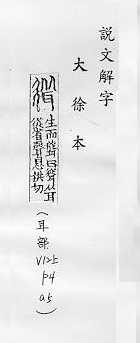 說文解字
大徐本
生而聾曰聳从耳
從省聲息拱切
(耳部 V12上 P4 a5)